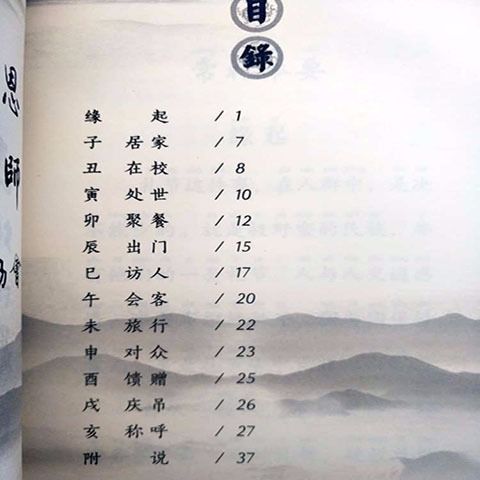 目錄
缘起 / 1
子 居家 / 7
丑 在校 / 8
寅 处世 / 10
卯 聚餐 / 12
辰 出门 / 15
巳 访人 / 17
午 会客 / 20
未 旅行 / 22
申 对众 / 23
酉 馈赠 / 25
戌 庆吊 / 26
亥 称呼 / 27
附说 / 37
恩師